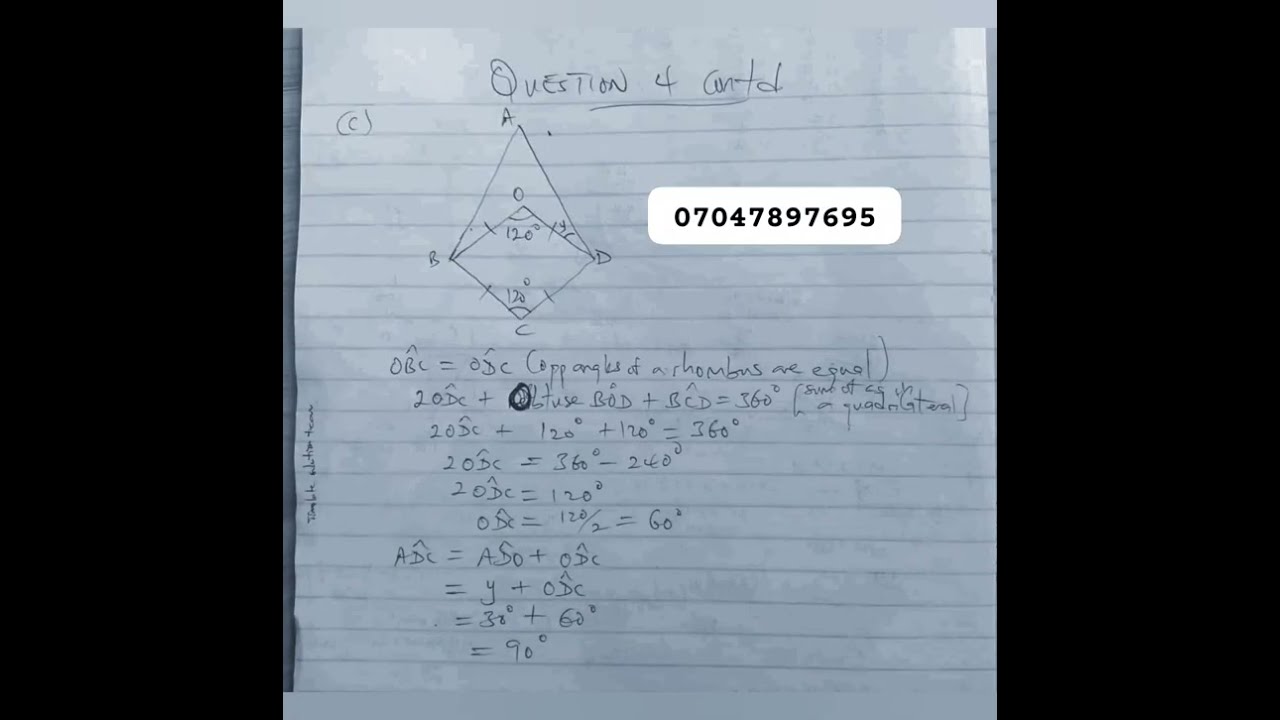 QUESTION 4 Contd
(C)
A
O
120°
y
B
D
120°
C
07047897695
OB̂C = OD̂C (opp angles of a rhombus are equal)
2OD̂C + Obtuse BÔD + BĈD = 360° [sum of ∠s in a quadrilateral]
2OD̂C + 120° + 120° = 360°
2OD̂C = 360° - 240°
2OD̂C = 120°
OD̂C = 120/2 = 60°
AD̂C = AD̂O + OD̂C
= y + OD̂C
= 30° + 60°
= 90°